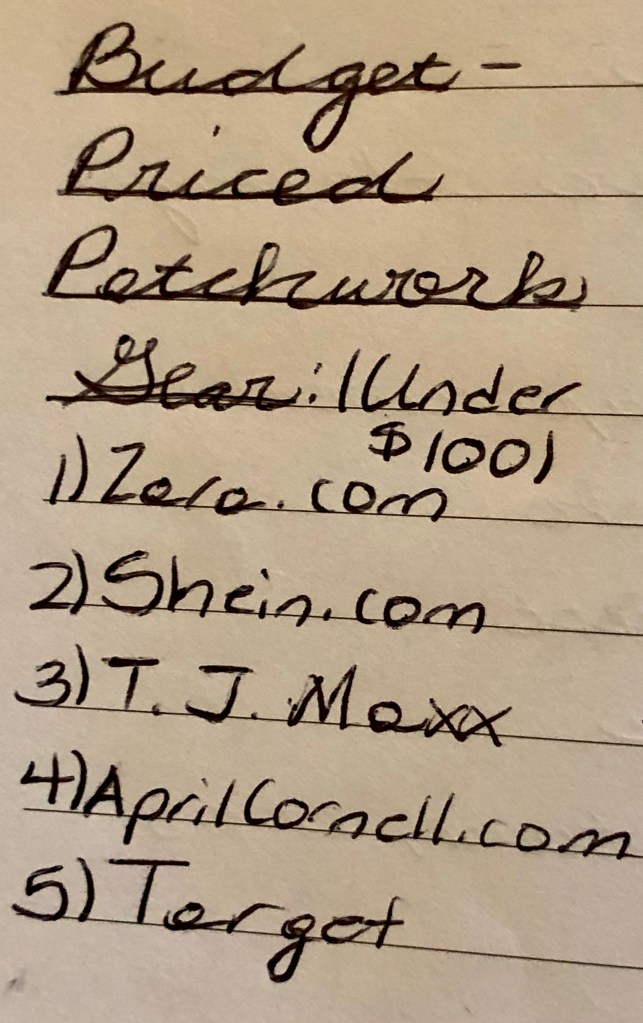 Budget-
Priced
Patchwork
Gear: (Under
$100)
1) Zara.com
2) Shein.com
3) T. J. Maxx
4) AprilCornell.com
5) Target